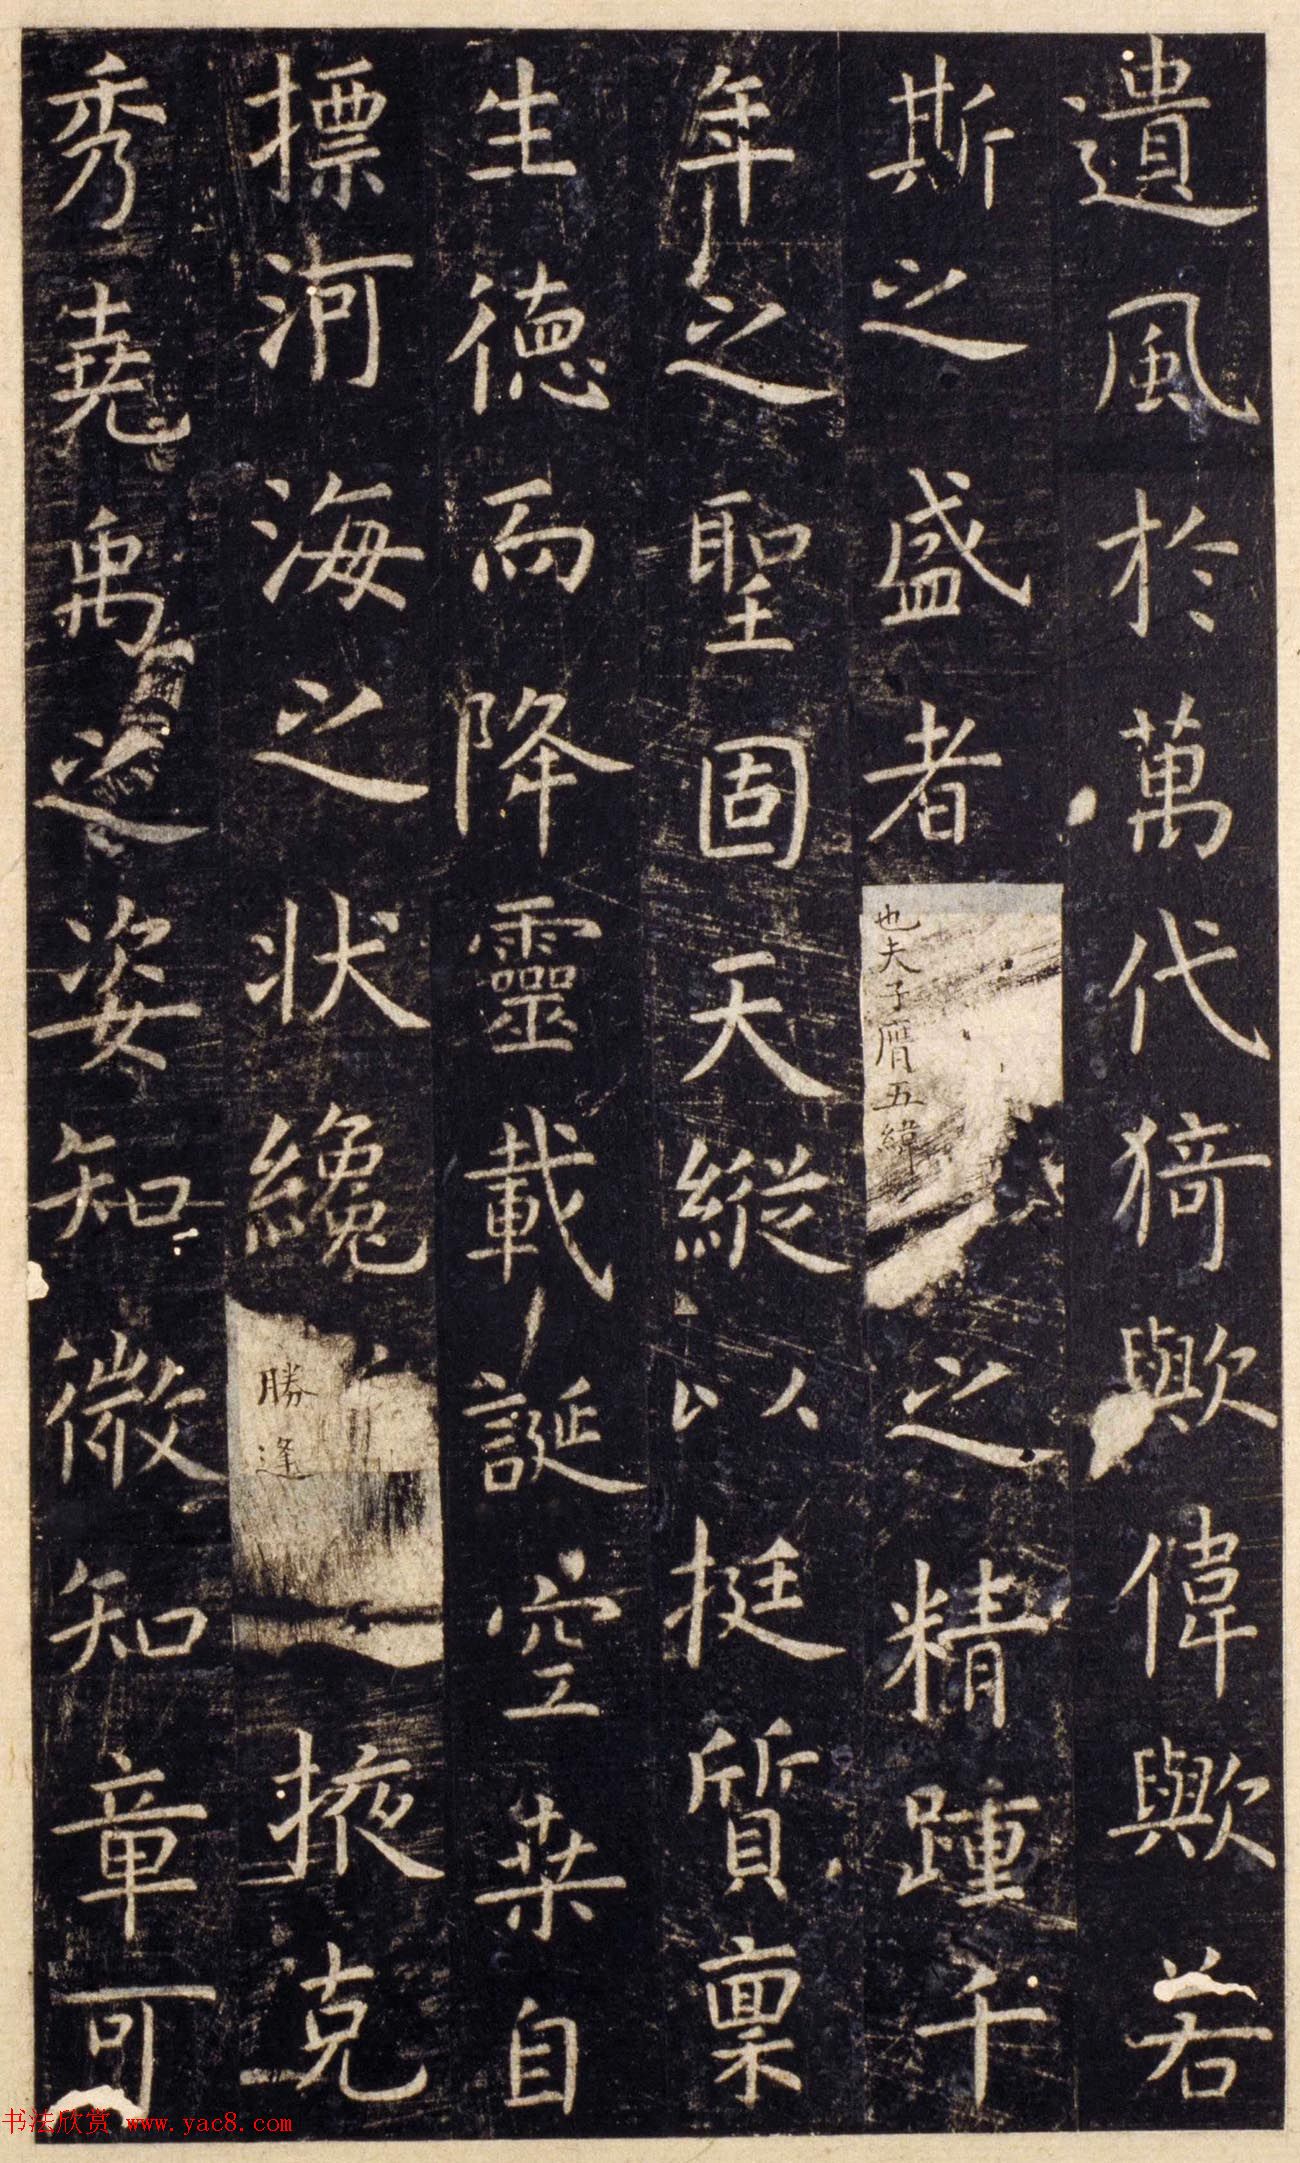 遺風於萬代猗歟偉歟若
斯之盛者也夫子膺五緯之精踵千
年之聖固天縱以挺質稟
生德而降靈載誕空桒自
標河海之狀纔勝逢掖克
秀堯禹之姿知微知章可
书法欣赏 www.yac8.com